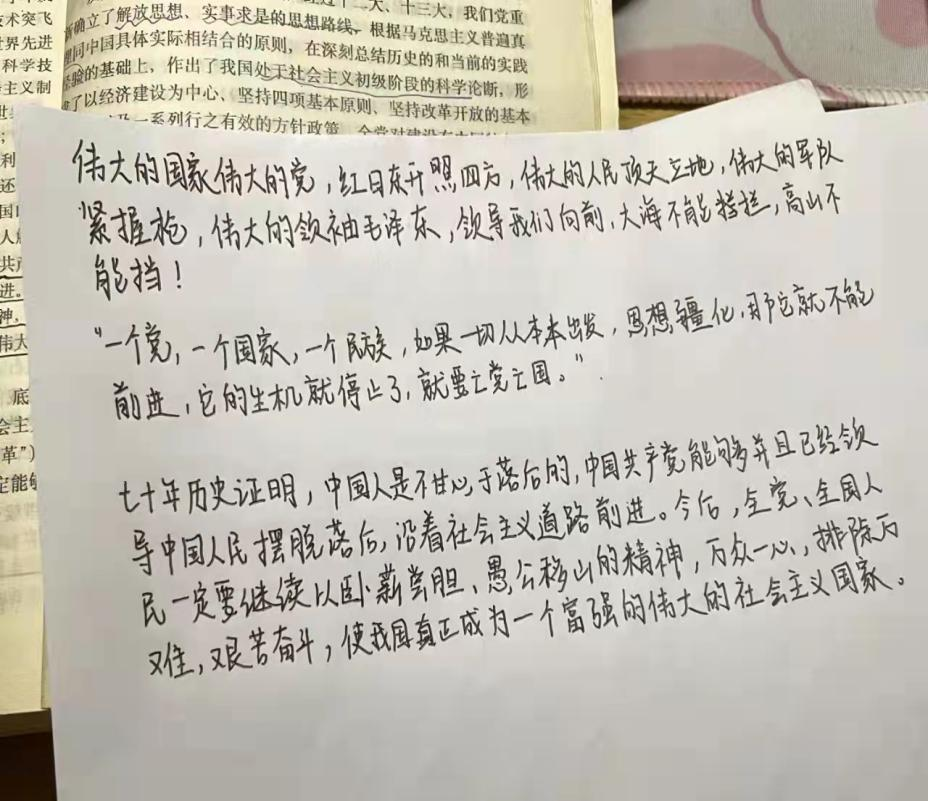 二大、十三大，我们党重
新确立了解放思想、实事求是的思想路线，根据马克思主义普遍真
理同中国具体实际相结合的原则，在深刻总结历史的和当前的实践
经验的基础上，作出了我国处于社会主义初级阶段的科学论断，形
了以经济建设为中心、坚持四项基本原则、坚持改革开放的基本
一系列行之有效的方针政策
术突飞
世界先进
科学技
主义制
利
还
国
人
共产
进。
神，
伟大
底
会主
革”）
定能够
伟大的国家伟大的党，红日东升照四方，伟大的人民顶天立地，伟大的军队
紧握枪，伟大的领袖毛泽东，领导我们向前，大海不能拦，高山不
能挡！
“一个党，一个国家，一个民族，如果一切从本本出发，思想疆化，那它就不能
前进，它的生机就停止了，就要亡党亡国。”
七十年历史证明，中国人是不甘心于落后的，中国共产党能够并且已经领
导中国人民摆脱落后，沿着社会主义道路前进。今后，全党、全国人
民一定要继续以卧薪尝胆、愚公移山的精神，万众一心，排除万
难，艰苦奋斗，使我国真正成为一个富强的伟大的社会主义国家。